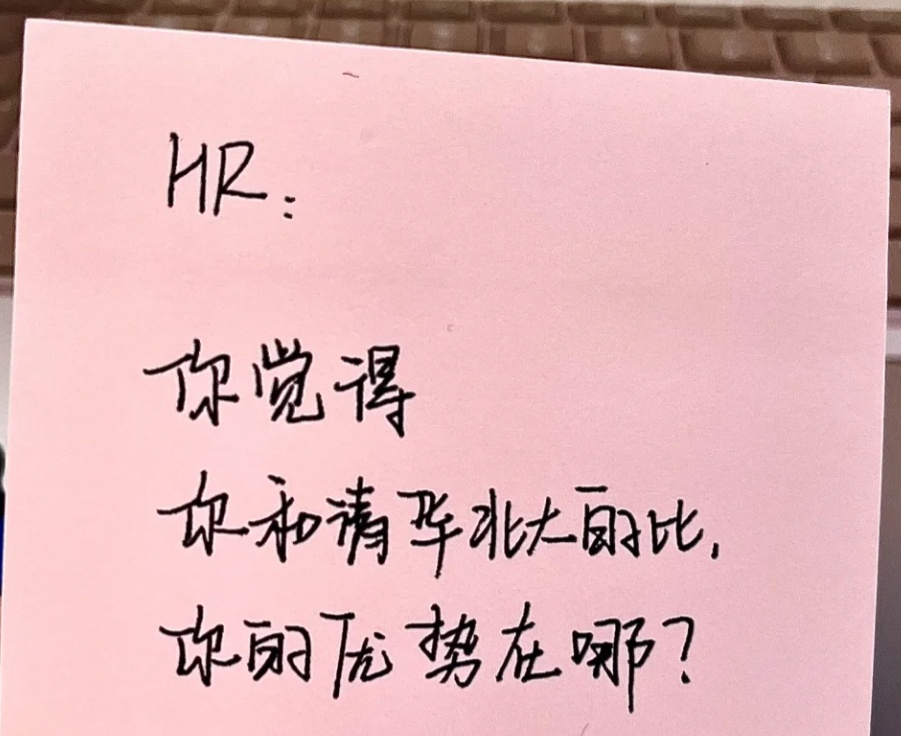 HR:
你觉得
你和清华北大的比,
你的优势在哪?